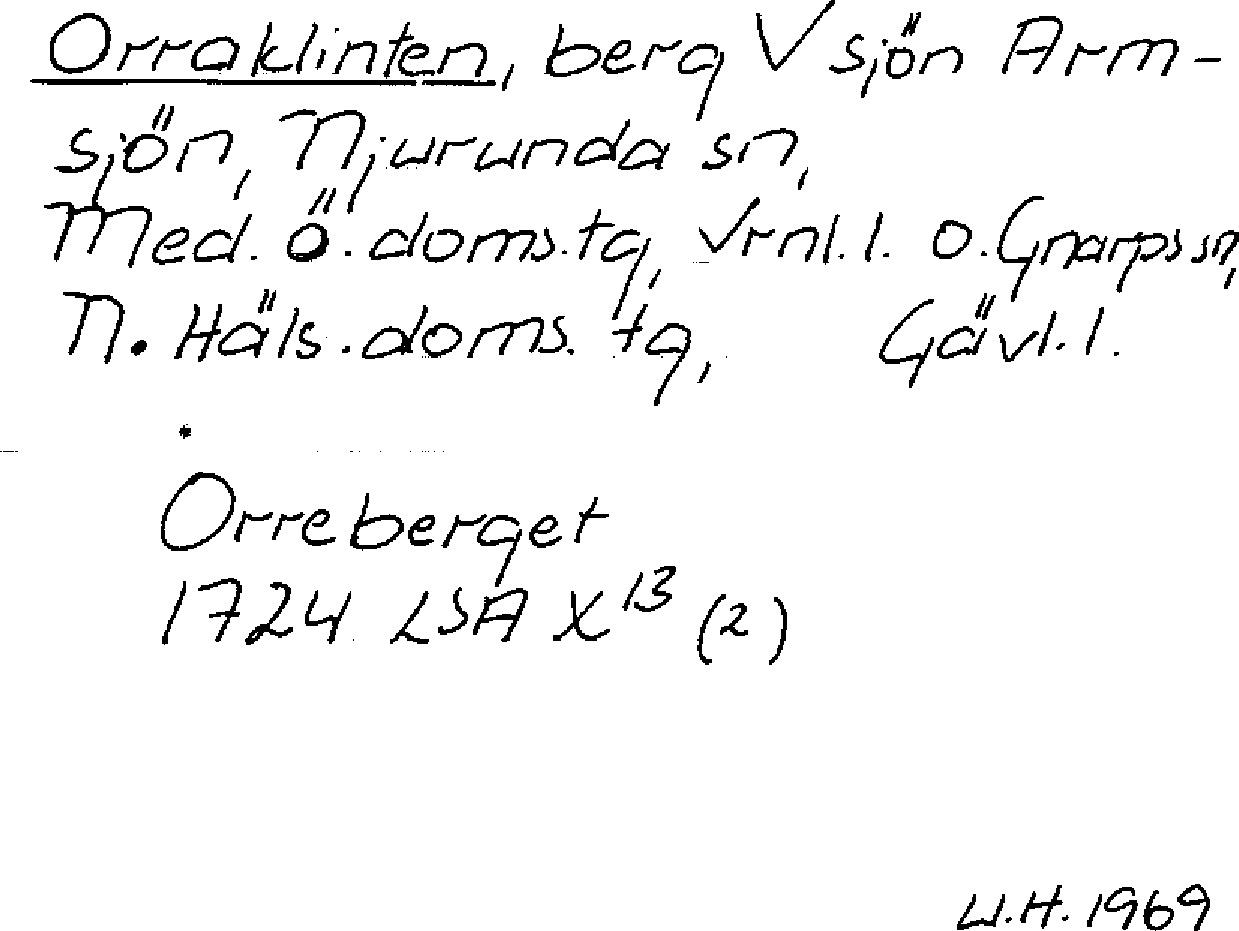 Orraklinten, berg V sjön Arm-
sjön, Njurunda sn,
Med. ö. doms.tg, Vrnl. l. o. Gnarps sn,
N. Häls. doms. tg, Gävl. l.
Orreberget
1724 LSA X13 (2)
W.H. 1969